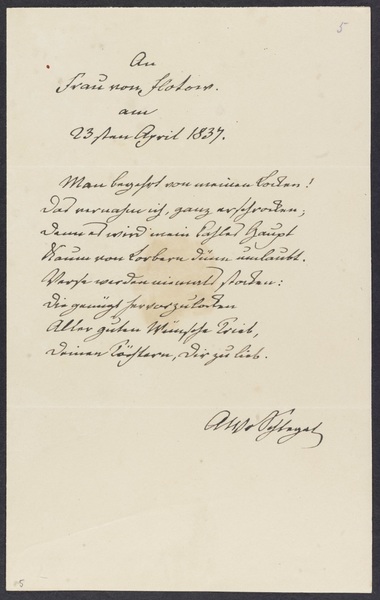 5
An
Frau von Flotow.
am
23sten April 1837.
Man begehrt von meinen Locken!
Das vernahm ich, ganz erschrocken;
Denn es wird mein kahles Haupt
Kaum von Lorbern dünn umlaubt.
Verse werden niemals stocken:
Die genügt hervorzulocken
Aller guten Wünsche Trieb,
Deinen Töchtern, Dir zu lieb.
AWvSchlegel
5